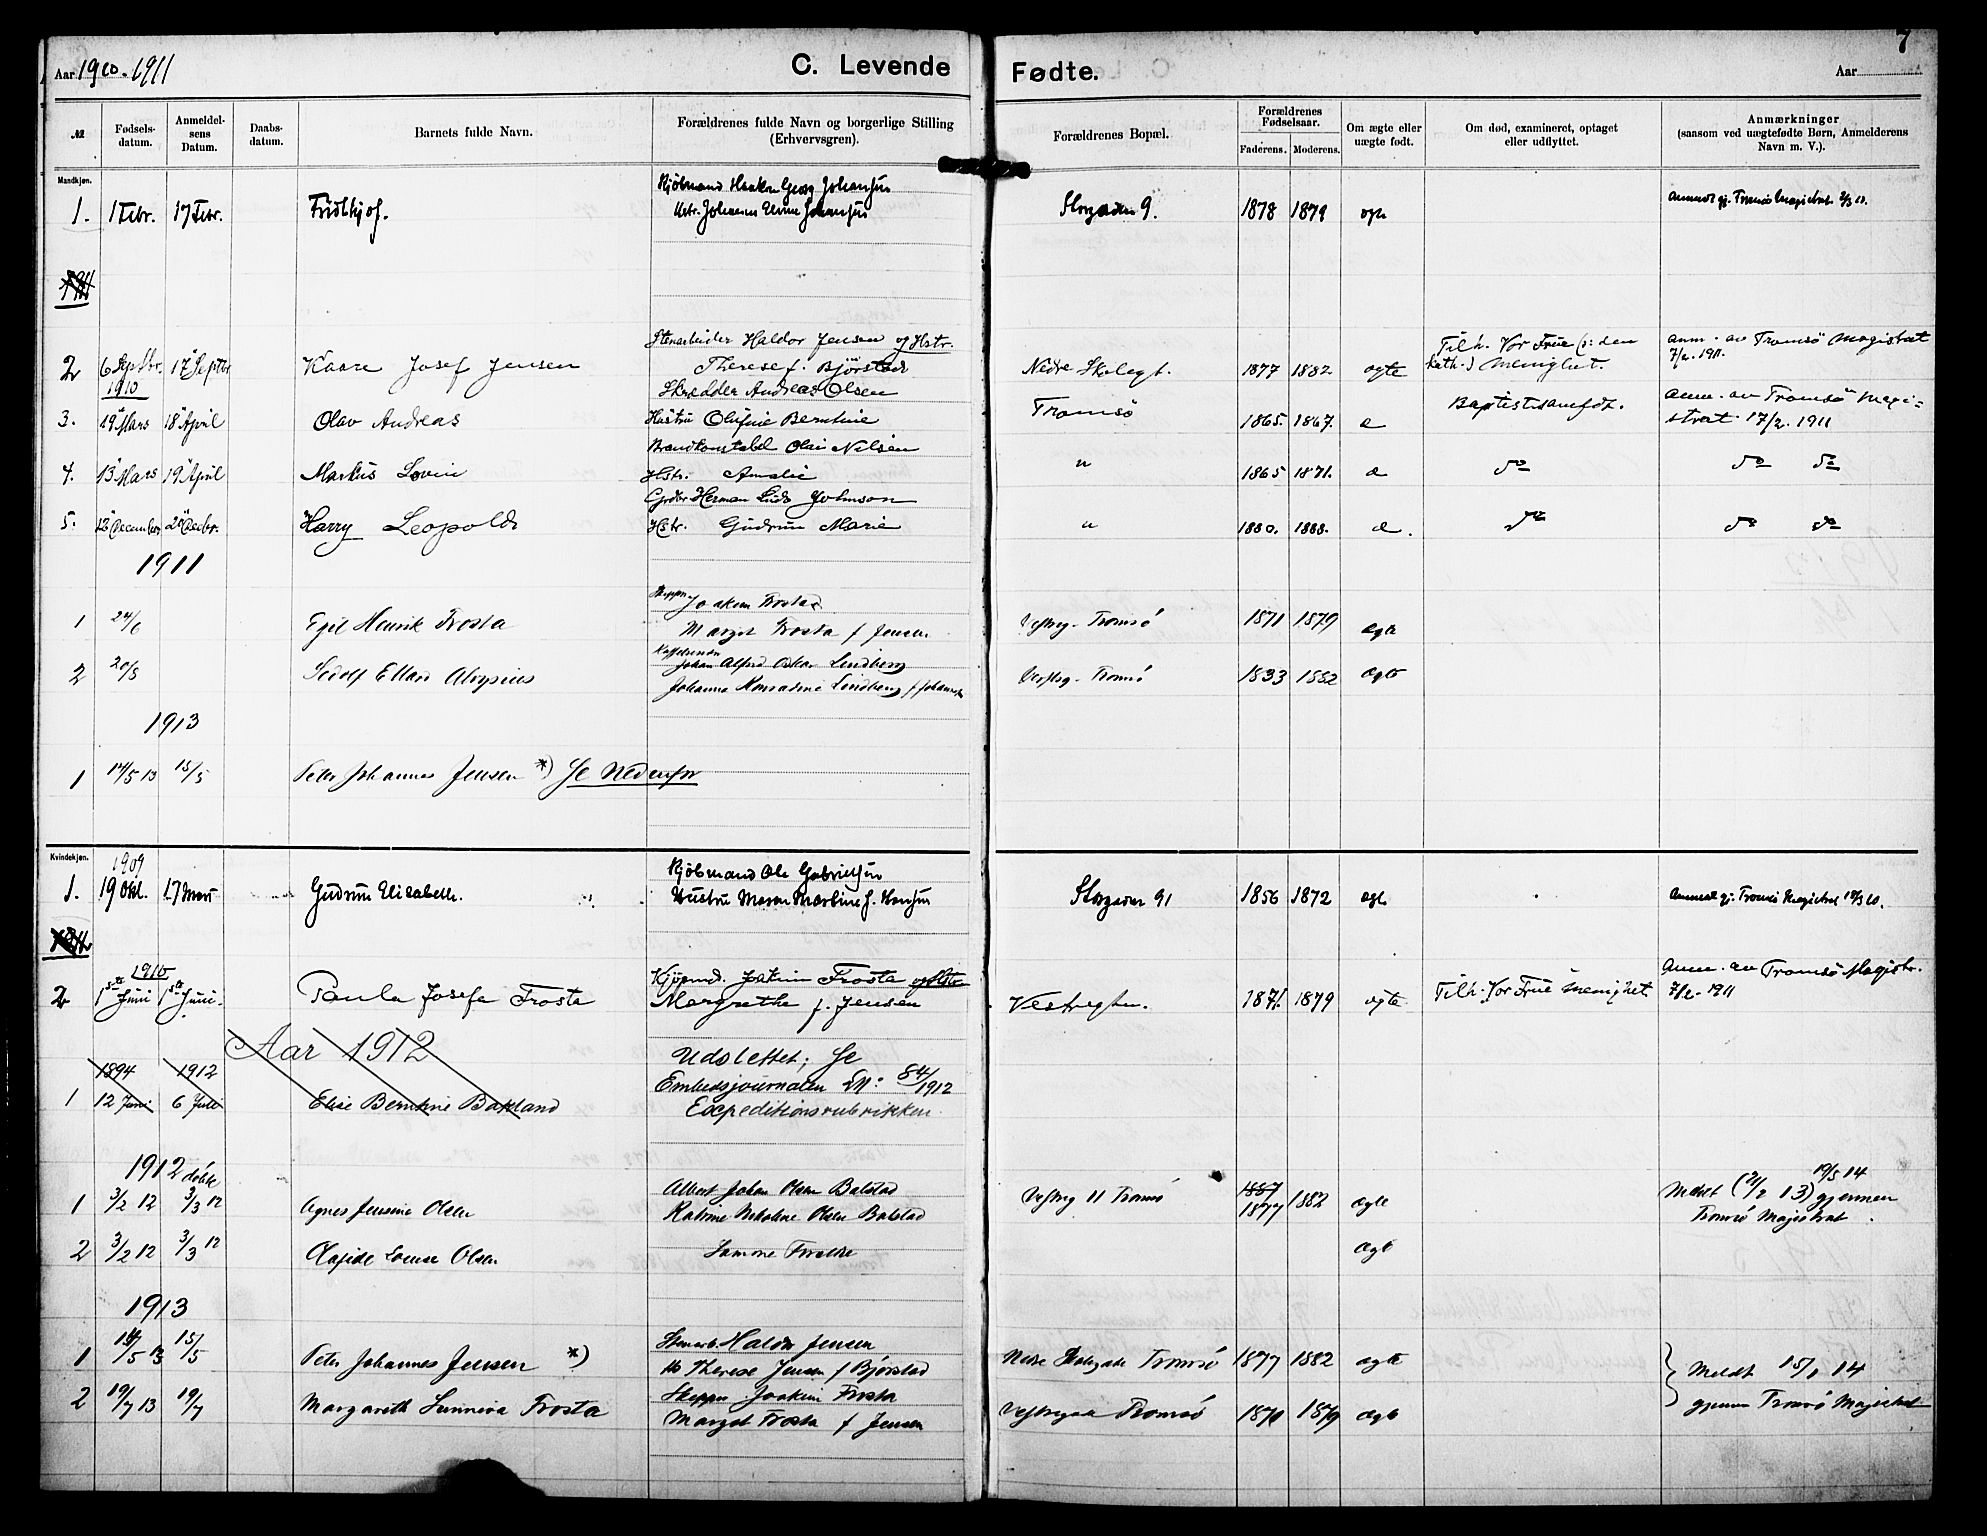 7
Aar 1910-1911
C. Levende
Fødte.
Aar
№
Fødsels-
datum.
Anmeldel-
sens
Datum.
Daabs-
datum.
Barnets fulde Navn.
Forældrenes fulde Navn og borgerlige Stilling
(Erhvervsgren).
Forældrenes Bopæl.
Forældrenes
Fødselsaar.
Faderens. Moderens.
Om ægte eller
uægte født.
Om død, examineret, optaget
eller udflyttet.
Anmærkninger
(saasom ved uægtefødte Børn, Anmelderens
Navn m. V.).
Mandkjøn.
Kjöbmand Haakon Georg Johansen
1. 1 Febr. 17 Febr. Fridthjof. Johansen Storgaden 9. 1878 1879 Tromsö Magistrat
1911
Stenarbeider Haldor Jensen og Hstr. Tilh. Vor Frue (: den anm. av Tromsö Magistrat
2 6 Septbr. 17 Septbr Kaare Josef Jensen Therese f. Björstad Nedre Skolegt. 1877 1882 ægte kath.) Menighet. 7/2. 1911.
1910 Skrædder Andreas Olsen
3. 19 Mars 18 April Olav Andreas Hustru Olufine Bernhine Tromsö 1865. 1867. æ Baptistsamfdt. anm. av Tromsö Magi-
strat 17/2. 1911
Brandkonstabel Olai Nilsen
4. 13 Mars 19 April Markus Lovin Hstr. Amalie " 1865 1871. æ do do do
Herman Johnson
5. 12 December 28 Decbr. Harry Leopold Hstr. Gudrun Marie " 1880. 1888. æ. do do do
1911
Skipper Joakim Frosta
1 24/6 Egil Henrik Frosta Margot Frosta f Jensen Vestreg. Tromsö 1871 1879 ægte
Johan Alfred Oskar Lindberg
2 20/8 Aloysius Johanna Lindberg f Johansen Vestreg. Tromsö 1833 1882 Ægte
1913
1 14/5 13 15/5 Peter Johannes Jensen *) Se Nedenfor
Kvindekjøn.
1909 Kjöbmand Ole Gabrielsen
1. 19 Okt. 17 Mars Gudrun Elisabeth. Hustru Maren Martine f. Hansen Storgaden 91 1856 1872 Tromsö Magistrat
1911
1910 Kjöpmd. Joakim Frosta og Hstr Anm. av Tromsö Magistr.
2 1ste Juni 1ste Juni. Paula Josefa Frosta Margrethe f. Jensen Vestregten. 1871. 1879 ægte Tilh. Vor Frue Menighet 7/2. 1911
Aar 1912 Udslettet; Se
1894 1912 Embedsjournalen No: 84/1912
1 12 Juni 6 Juli Elise Bernhine Bakland Expeditionsrubrikken.
1912 döbte
Albert Johan Olsen Balstad 19/5 14
1 3/2 12 3/3 12 Agnes Jensine Olsen Katrine Nikoline Olsen Balstad Vestreg 11 Tromsö 1887 1877 1882 ægte Meldt (2/2 13) gjennem
Tromsö Magistrat.
2 3/2 12 3/3 12 Louise Olsen Samme Forældre Ægte
1913
Stenarb. Haldor Jensen
1 14/5 13 15/5 Peter Johannes Jensen *) Therese Jensen f Björstad Nedre Skolgade Tromsö 1877 1882 ægte Meldt 15/1 14
Skipper Joakim Frosta
2 19/7 13 19/7 Margareth Sunniva Frosta Margot Frosta f Jensen Vestregade Tromsö 1870 1879 Ægte gjennem Tromsö Magistrat